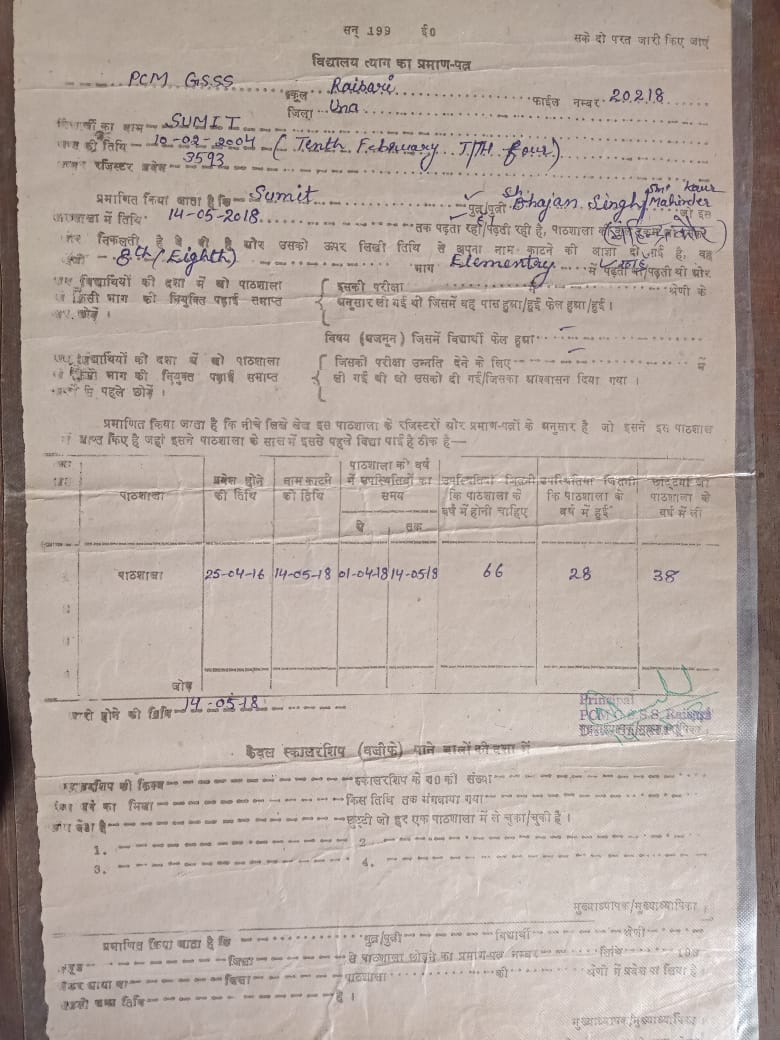 सन् 199 ई0
सके दो परत जारी किए जाएं
विद्यालय त्याग का प्रमाण-पत्र
PCM GSSS स्कूल Raibari फाईल नम्बर 20218
जिला Una
का नाम SUMIT
की तिथि 10-02-2004 (Tenth February Th four)
रजिस्टर प्रवेश 3593
प्रमाणित किया जाता है कि Sumit पुत्र/पुत्री Sh. Bhajan Singh/ Smt Mahinder Kaur जो इस
में तिथि 14-05-2018 तक पढ़ता रहा/पढ़ती रही है, पाठशाला
निकलती है वे दी है और उसको ऊपर लिखी तिथि से अपना नाम काटने की आज्ञा दी गई है, वह
8th (Eighth) भाग Elementary में पढ़ता था/पढ़ती थी और
विद्यार्थियों की दशा में जो पाठशाला इसकी परीक्षा में श्रेणी के
किसी भाग की नियुक्त पढ़ाई समाप्त अनुसार ली गई थी जिसमें वह पास हुआ/हुई फेल हुआ/हुई।
कर छोड़ें।
विषय (मजमून) जिसमें विद्यार्थी फेल हुआ
विद्यार्थियों की दशा में जो पाठशाला जिसकी परीक्षा उन्नति देने के लिए में
किसी भाग की नियुक्त पढ़ाई समाप्त ली गई थी जो उसको दी गई/जिसका आश्वासन दिया गया।
से पहले छोड़ें।
प्रमाणित किया जाता है कि नीचे लिखे लेख इस पाठशाला के रजिस्टरों और प्रमाण-पत्रों के अनुसार है जो इसने इस पाठशाला
में प्राप्त किए है जहां इसने पाठशाला के साल में इससे पहले विद्या पाई है ठीक है—
पाठशाला
प्रवेश होने की तिथि
नाम काटने की तिथि
पाठशाला को वर्ष में उपस्थितियों का समय
से तक
उपस्थितियां जितनी कि पाठशाला के वर्ष में होनी चाहिए
उपस्थितियां जितनी कि पाठशाला के वर्ष में हुई
छुट्टियां जो पाठशाला के वर्ष में ली
पाठशाला 25-04-16 14-05-18 01-04-18 14-05-18 66 28 38
जोड़
जारी होने की तिथि 14-05-18
Principal
केवल स्कालरशिप (वजीफे) पाने वालों की दशा में
की किस्म स्कालरशिप के रु0 की संख्या
का किस तिथि तक मंगवाया गया
छुट्टी जो हर एक पाठशाला में ले चुका/चुकी है।
1. 2
3. 4.
मुख्याध्यापक/मुख्याध्यापिका
प्रमाणित किया जाता है कि पुत्र/पुत्री विद्यार्थी श्रेणी
स्कूल जिला से पाठशाला छोड़ने का प्रमाण-पत्र नम्बर तिथि 199
जिला पाठशाला की श्रेणी में प्रवेश पा लिया है।
तिथि है।
मुख्याध्यापक/मुख्याध्यापिका